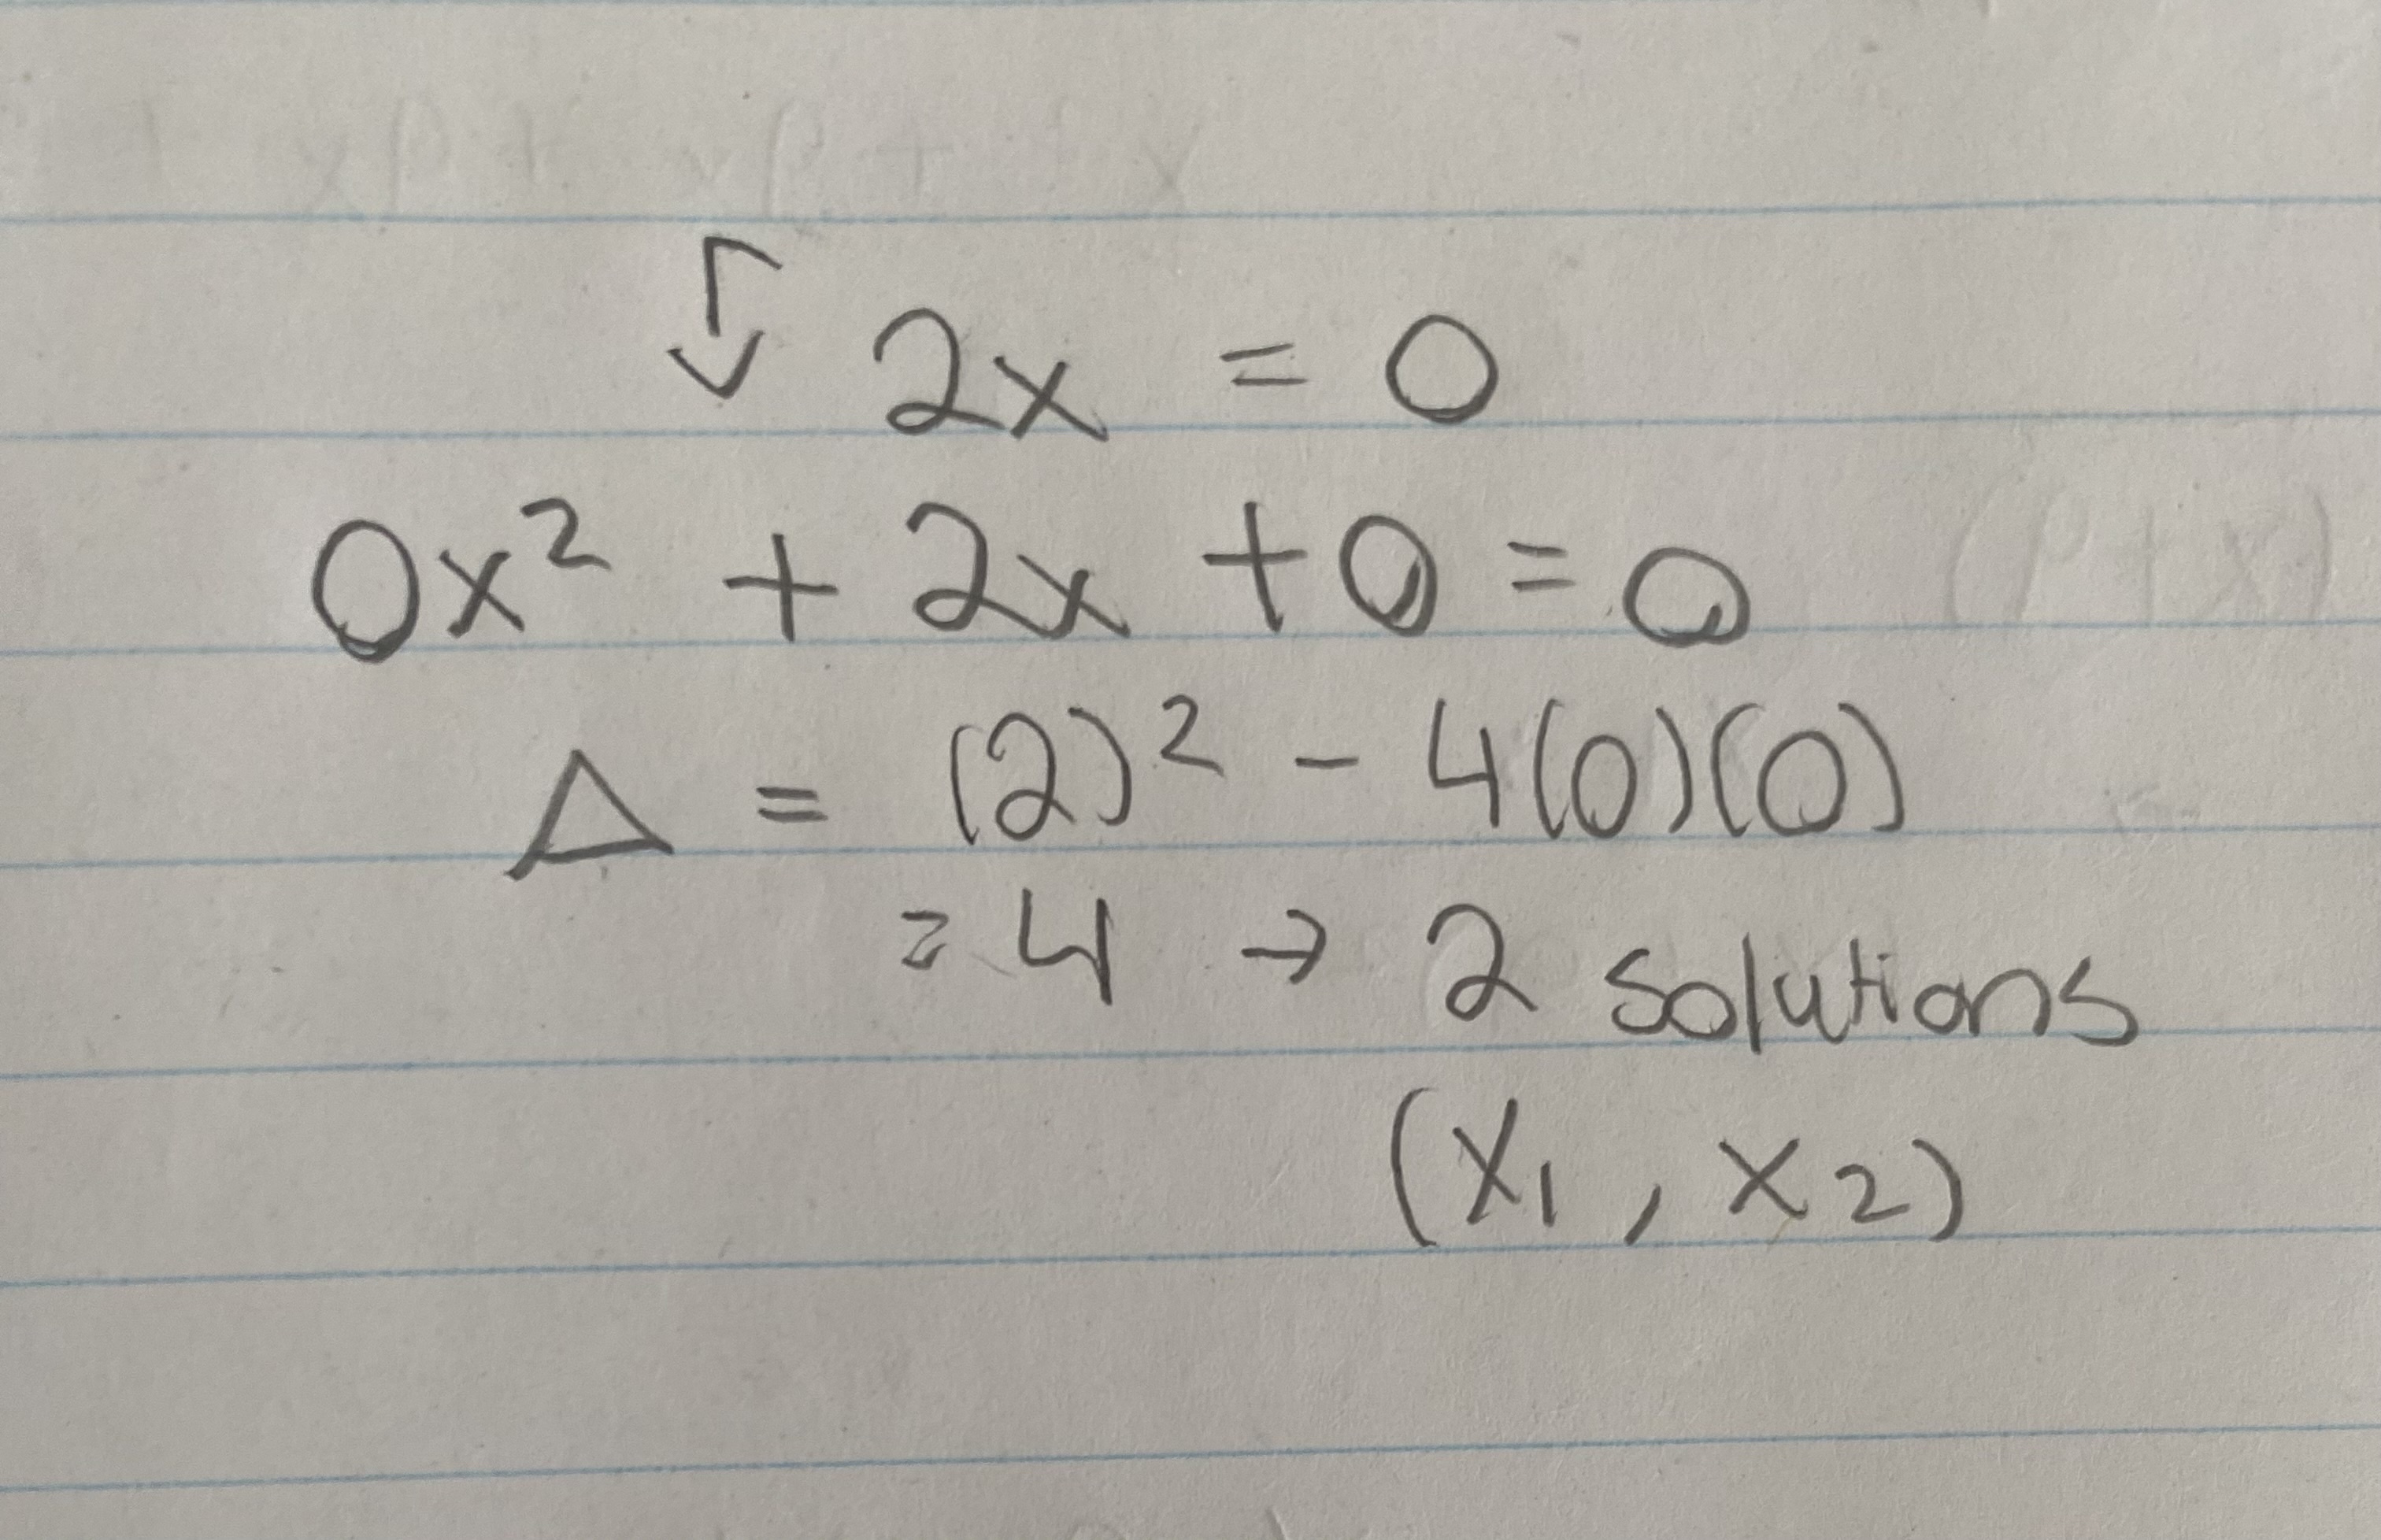 ↓ 2x = 0
0x² + 2x + 0 = 0
Δ = (2)² - 4(0)(0)
= 4 → 2 solutions
(x₁, x₂)